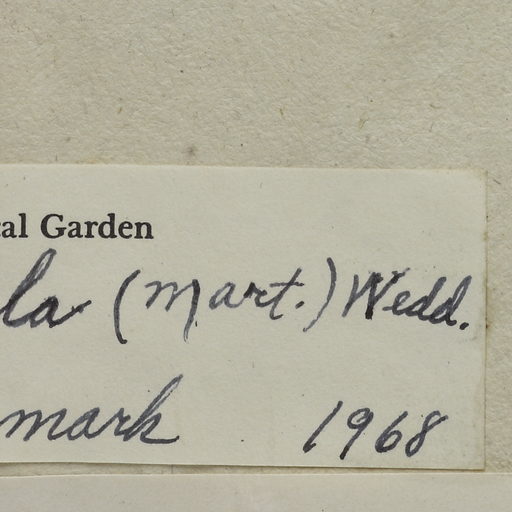 cal Garden
la (Mart.) Wedd.
mark 1968